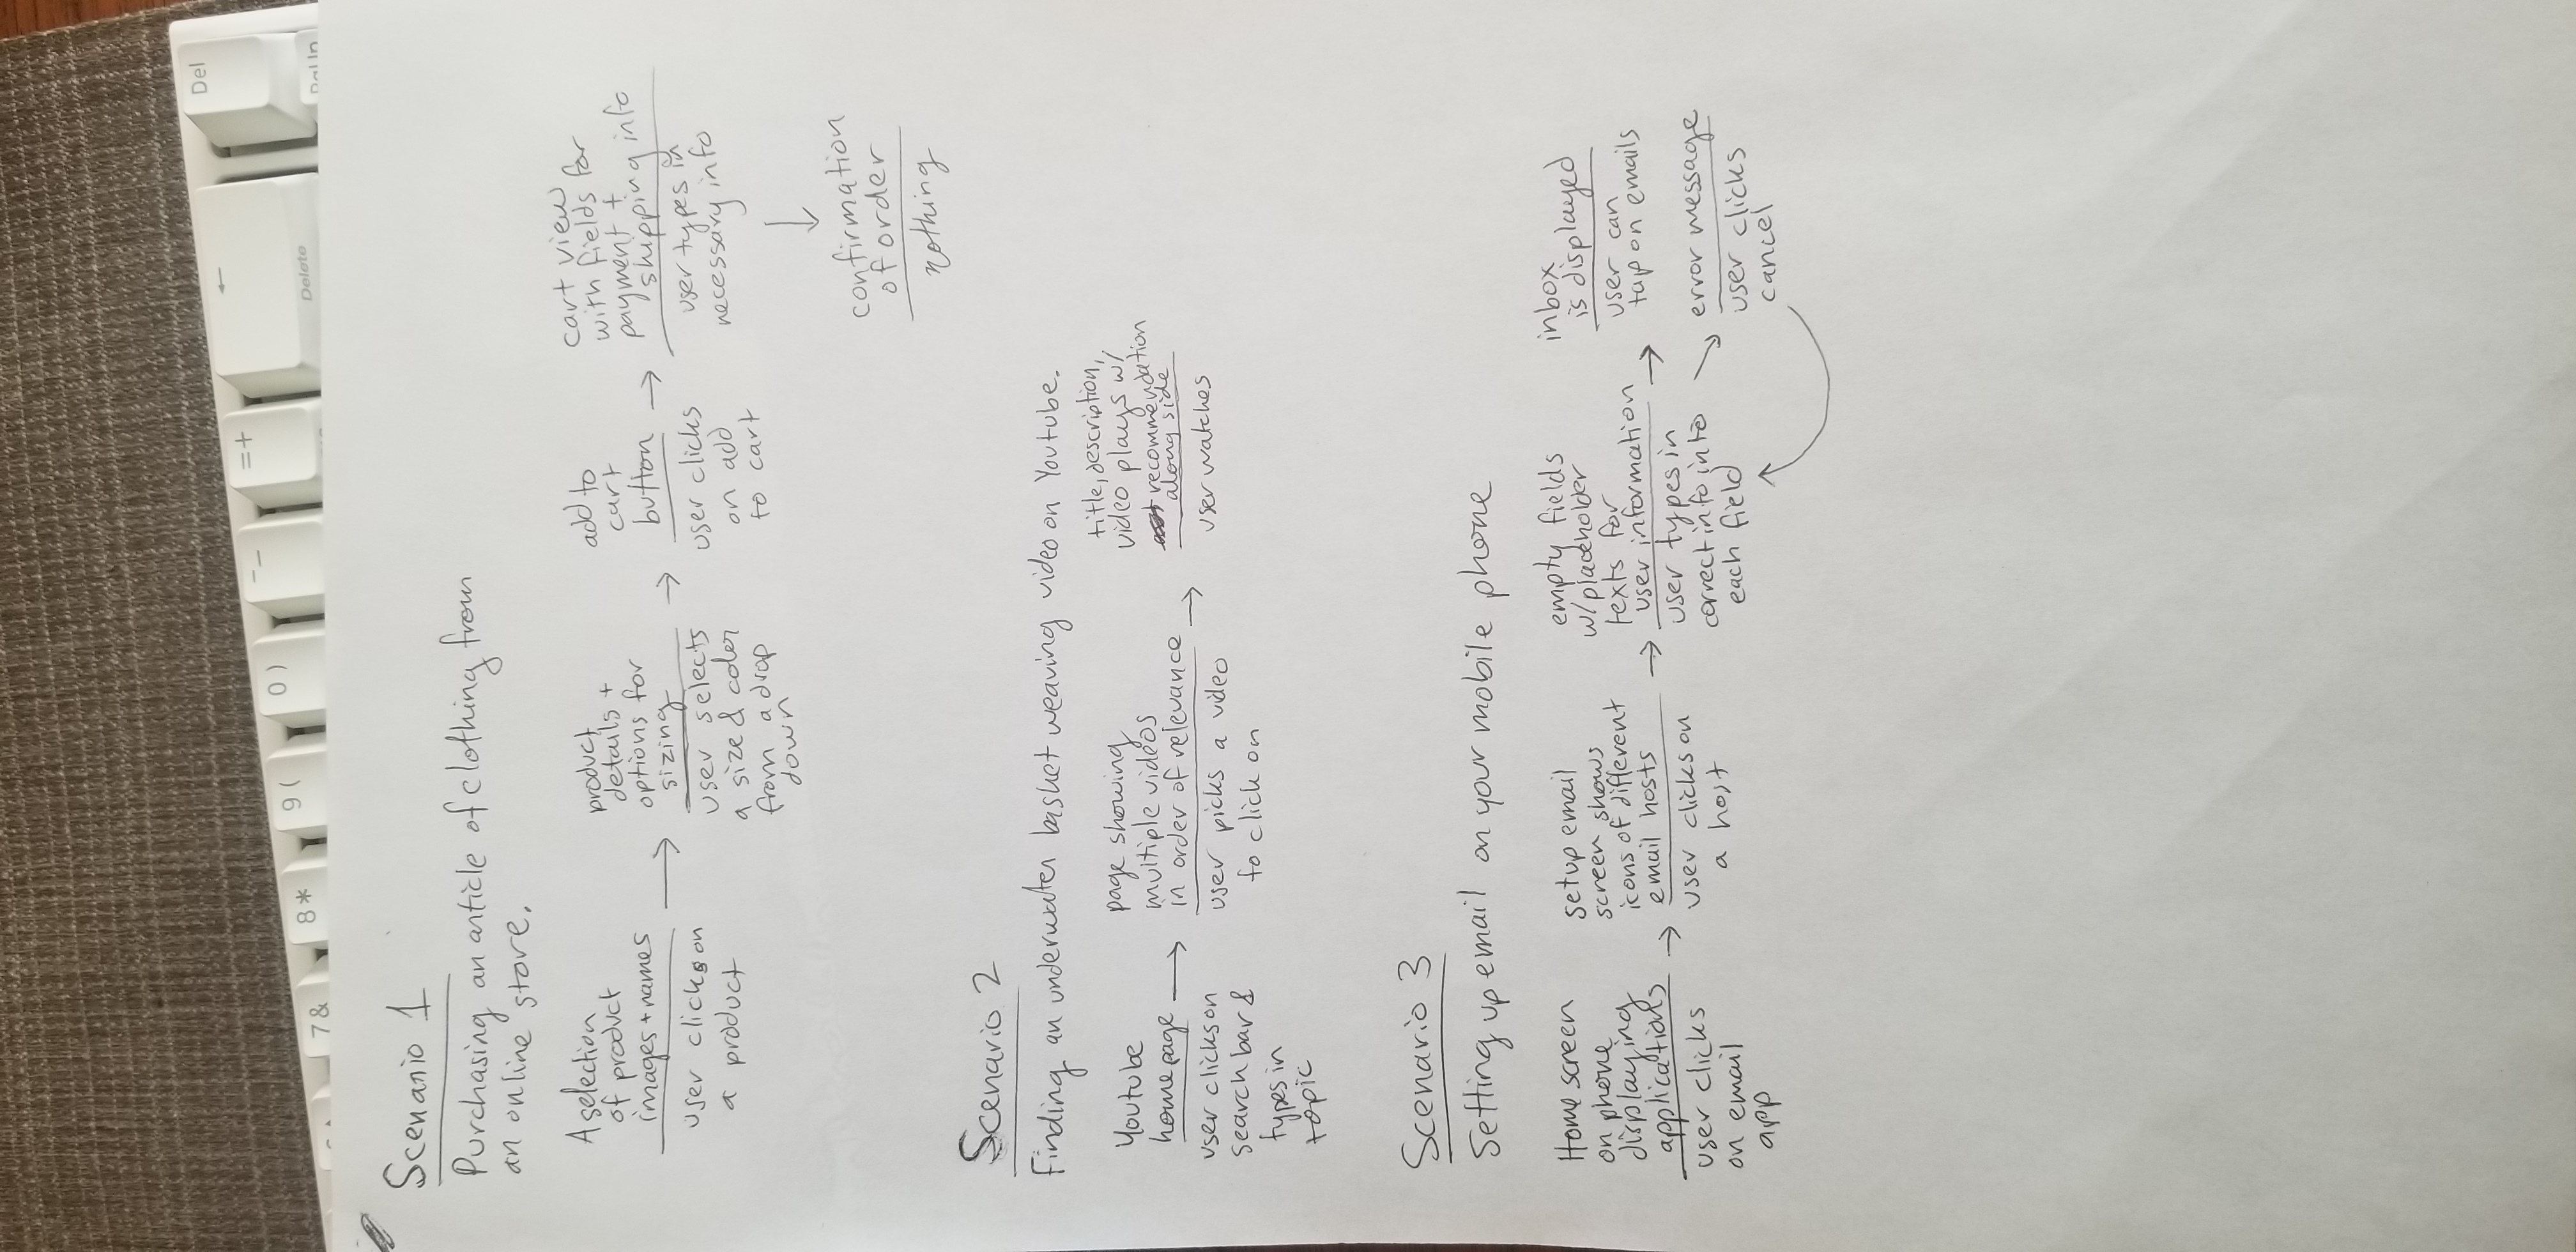 Del
=+
-_
0)
9(
8*
7&
←
Delete
PgUp
Scenario 1
Purchasing an article of clothing from
an online store.
A selection
of product
images + names
user clicks on
a product
product
details +
options for
sizing
user selects
a size & color
from a drop
down
add to
cart
button
user clicks
on add
to cart
cart view
with fields for
payment +
shipping info
user types in
necessary info
confirmation
of order
nothing
Scenario 2
Finding an underwater basket weaving video on Youtube.
Youtube
homepage
user clicks on
search bar &
types in
topic
page showing
multiple videos
in order of relevance
user picks a video
to click on
title, description,
video plays w/
recommendation
along side
user watches
Scenario 3
Setting up email on your mobile phone
Home screen
on phone
displaying
applications
user clicks
on email
app
setup email
screen shows
icons of different
email hosts
user clicks on
a host
empty fields
w/placeholder
texts for
user information
user types in
correct info into
each field
inbox
is displayed
user can
tap on emails
error message
user clicks
cancel